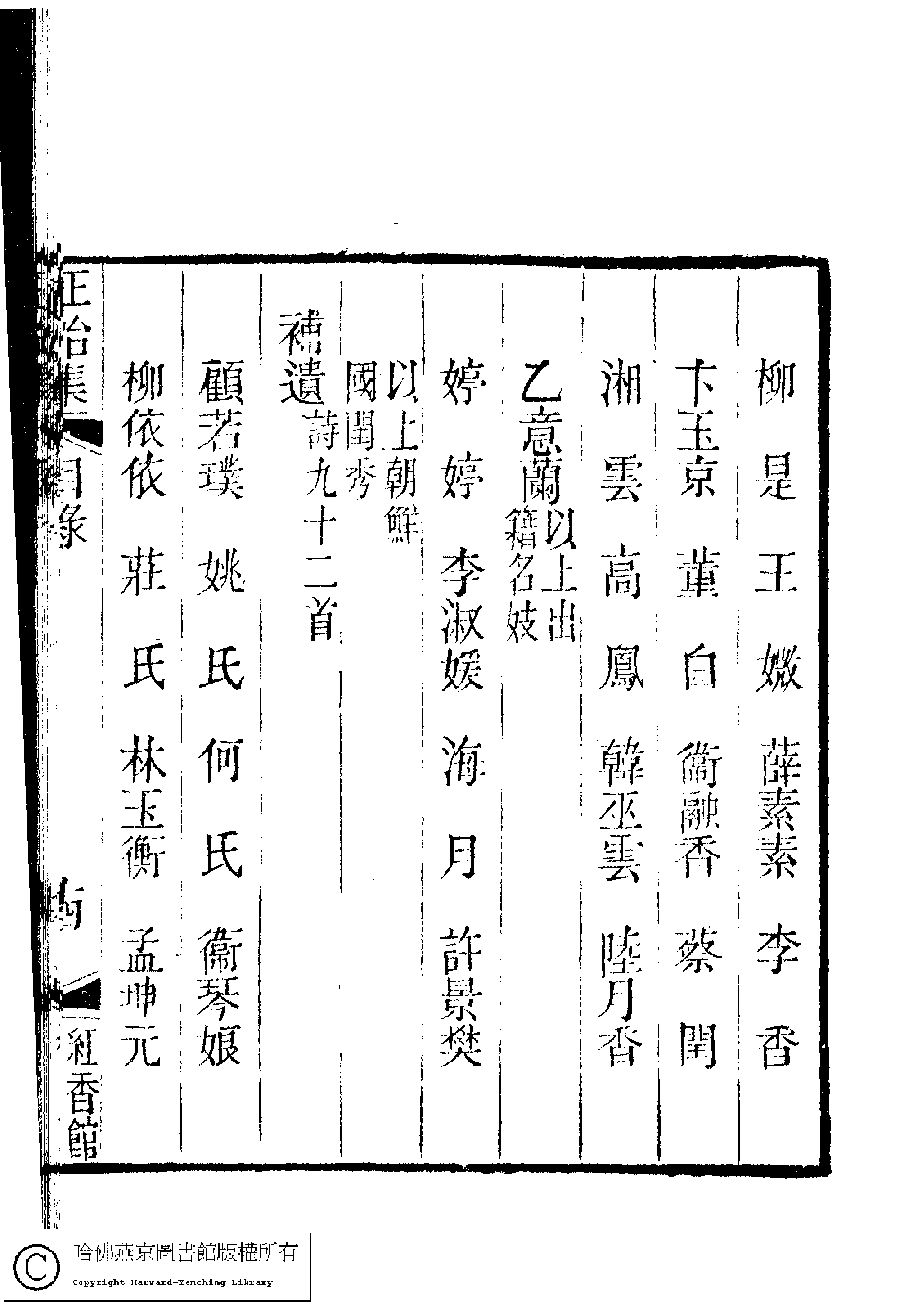 柳是 王媺 薛素素 李香
卞玉京 董白 衞融香 蔡閏
湘雲 高鳳 韓巫雲 陸月香
乙意蘭 以上出
籍名妓
婷婷 李淑媛 海月 許景樊
以上朝鮮
國閨秀
補遺 詩九十二首
顧若璞 姚氏 何氏 衞琴娘
柳依依 莊氏 林玉衡 孟坤元
正始集 目錄 紅香館
哈佛燕京圖書館版權所有
Copyright Harvard-Yenching Library